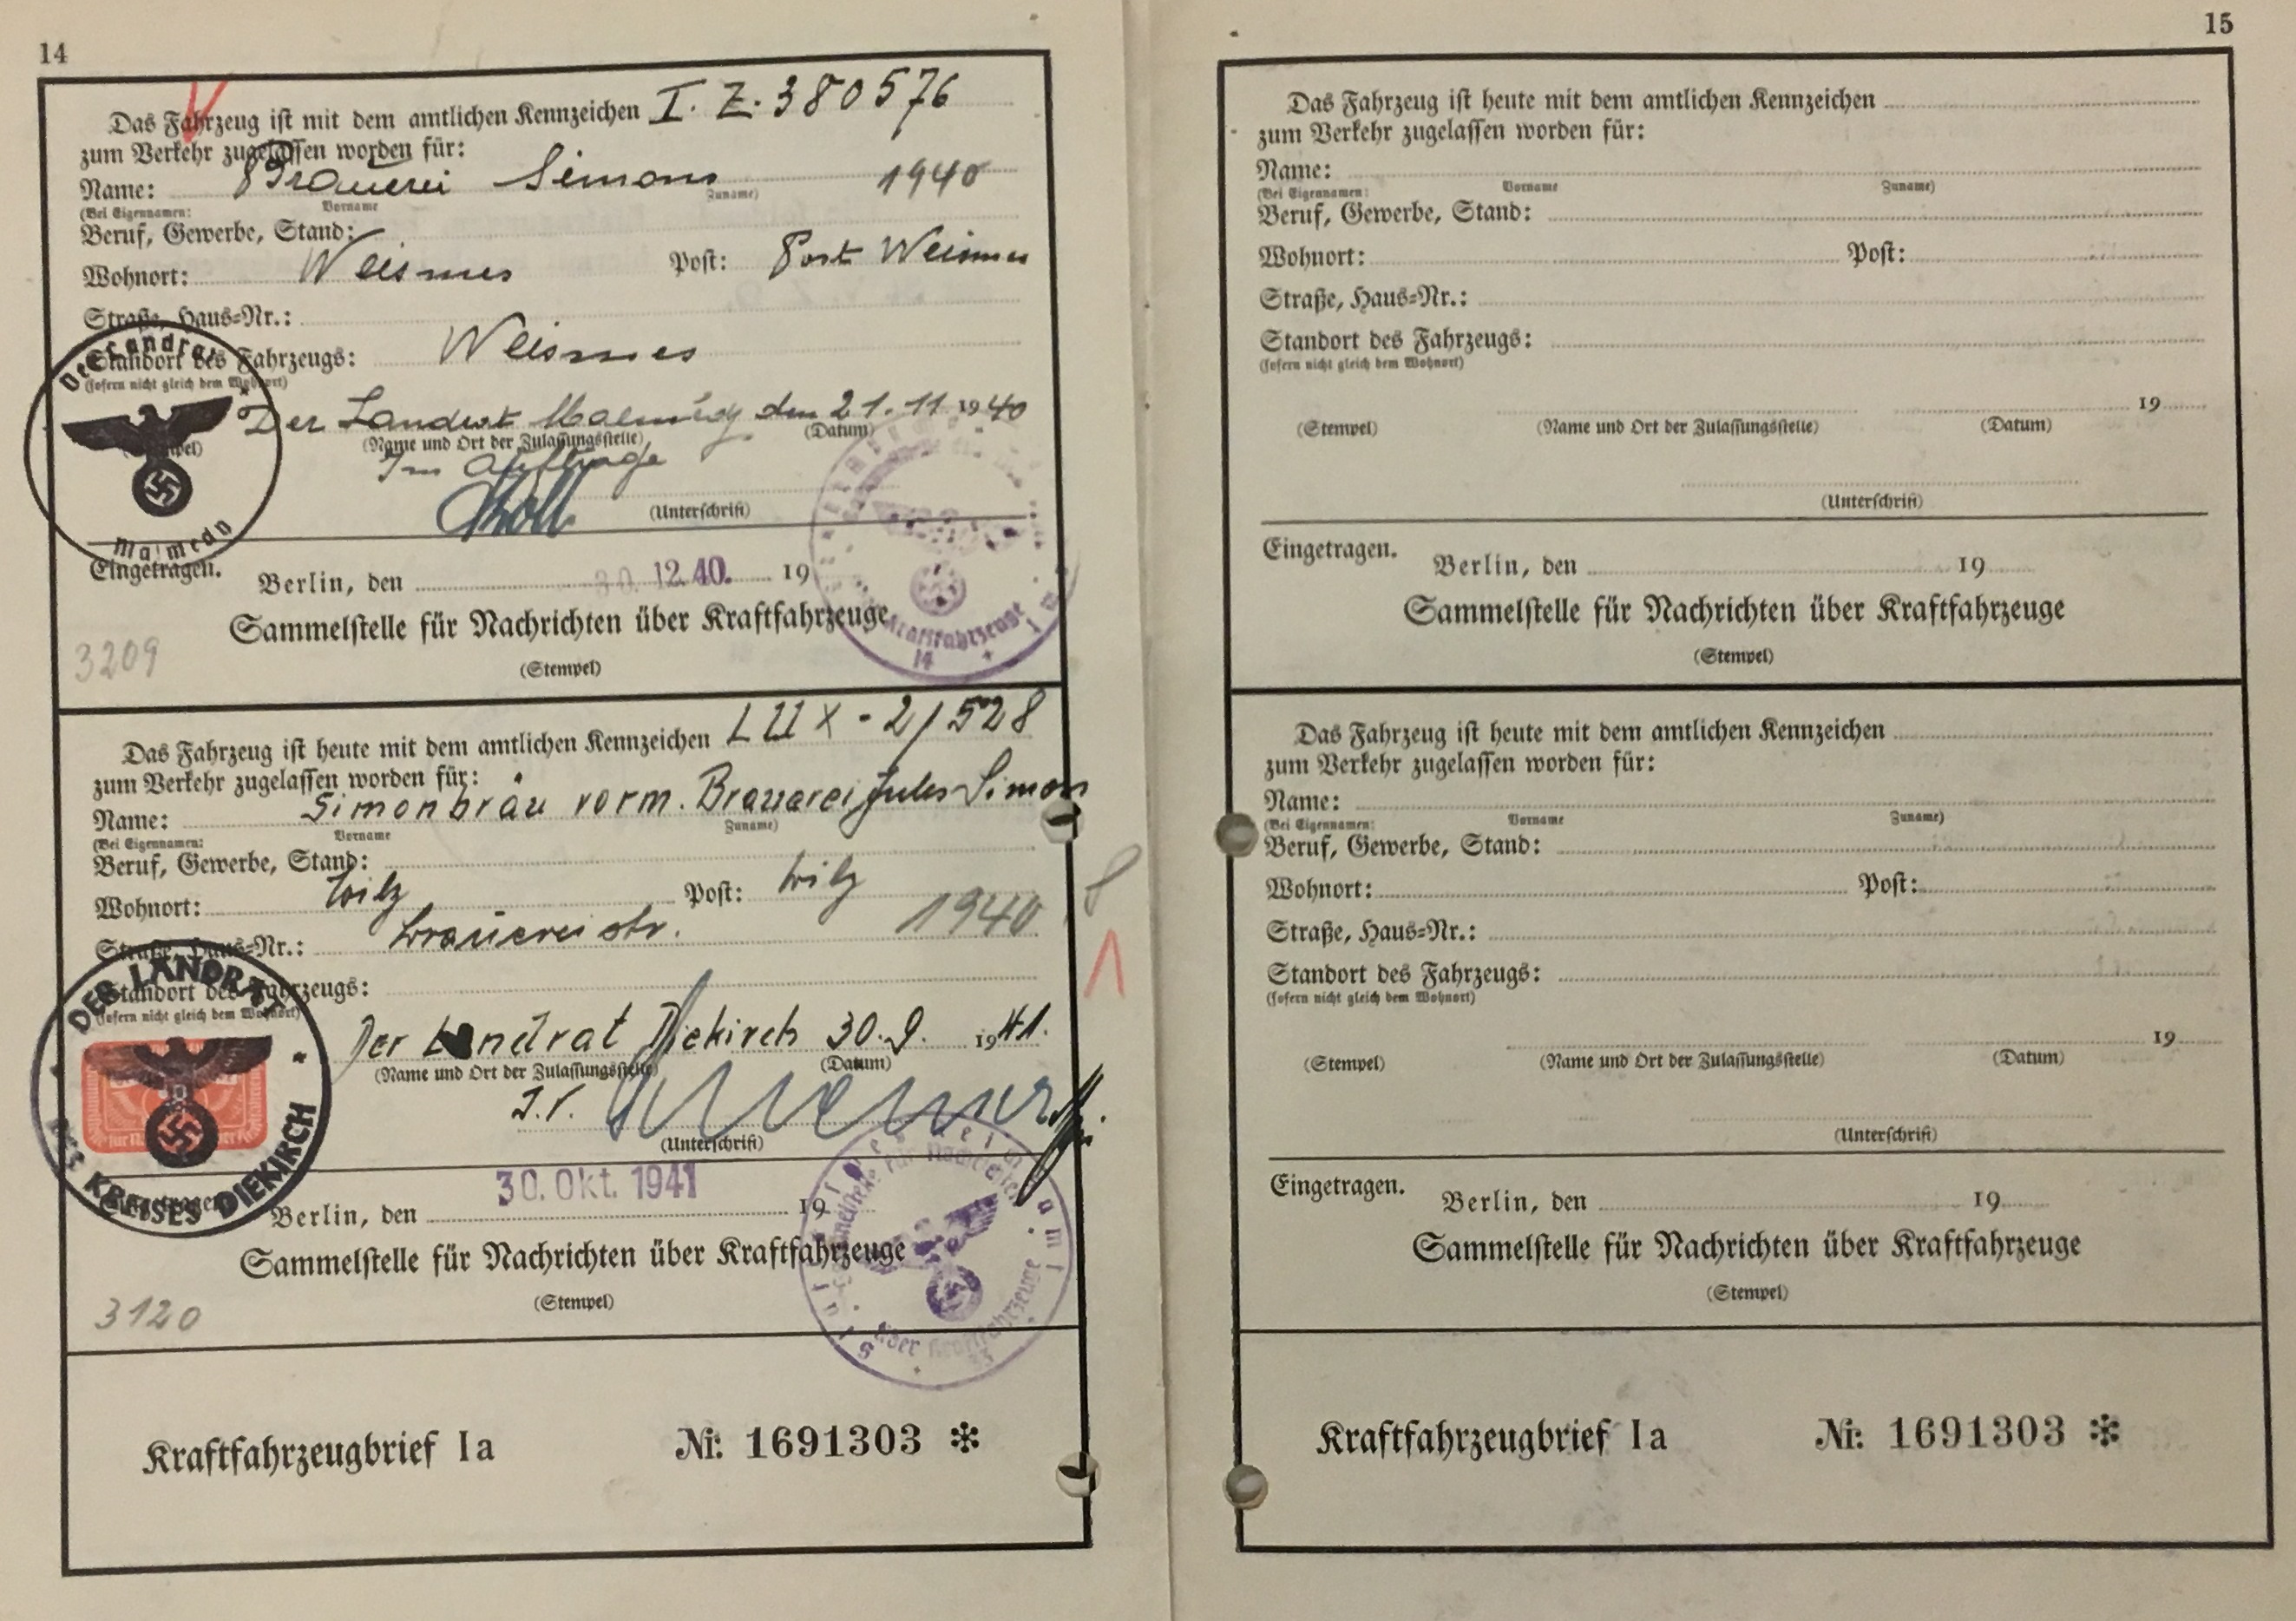 14
Das Fahrzeug ist mit dem amtlichen Kennzeichen I. Z. 380576
zum Verkehr zugelassen worden für:
Name: Brauerei Simons 1940
(Bei Eigennamen: Vorname Zuname)
Beruf, Gewerbe, Stand:
Wohnort: Weismes Post: Post Weismes
Straße, Haus=Nr.:
Standort des Fahrzeugs: Weismes
(sofern nicht gleich dem Wohnort)
Der Landrat Malmedy den 21.11 1940
(Name und Ort der Zulassungsstelle) (Datum)
Im Auftrage
(Unterschrift)
Der Landrat
Malmedy
Eingetragen.
Berlin, den 30. 12. 40. 19
Sammelstelle für Nachrichten über Kraftfahrzeuge
(Stempel)
Kraftfahrzeuge
14
3209
Das Fahrzeug ist heute mit dem amtlichen Kennzeichen LUX - 2/528
zum Verkehr zugelassen worden für:
Name: Simonbräu vorm. Brauerei Jules Simon
(Bei Eigennamen: Vorname Zuname)
Beruf, Gewerbe, Stand:
Wohnort: Wilz Post: Wilz
Straße, Haus=Nr.: Brauereistr. 1940
Standort des Fahrzeugs:
(sofern nicht gleich dem Wohnort)
Der Landrat Diekirch 30.9. 1941.
(Name und Ort der Zulassungsstelle) (Datum)
I.V.
(Unterschrift)
DER LANDRAT
DES KREISES DIEKIRCH
Eingetragen.
Berlin, den 30. Okt. 1941 19
Sammelstelle für Nachrichten über Kraftfahrzeuge
(Stempel)
Sammelstelle für Nachrichten
über Kraftfahrzeuge
33
3120
Kraftfahrzeugbrief Ia Nr. 1691303 *
15
Das Fahrzeug ist heute mit dem amtlichen Kennzeichen
zum Verkehr zugelassen worden für:
Name:
(Bei Eigennamen: Vorname Zuname)
Beruf, Gewerbe, Stand:
Wohnort: Post:
Straße, Haus=Nr.:
Standort des Fahrzeugs:
(sofern nicht gleich dem Wohnort)
19
(Stempel) (Name und Ort der Zulassungsstelle) (Datum)
(Unterschrift)
Eingetragen.
Berlin, den 19
Sammelstelle für Nachrichten über Kraftfahrzeuge
(Stempel)
Das Fahrzeug ist heute mit dem amtlichen Kennzeichen
zum Verkehr zugelassen worden für:
Name:
(Bei Eigennamen: Vorname Zuname)
Beruf, Gewerbe, Stand:
Wohnort: Post:
Straße, Haus=Nr.:
Standort des Fahrzeugs:
(sofern nicht gleich dem Wohnort)
19
(Stempel) (Name und Ort der Zulassungsstelle) (Datum)
(Unterschrift)
Eingetragen.
Berlin, den 19
Sammelstelle für Nachrichten über Kraftfahrzeuge
(Stempel)
Kraftfahrzeugbrief Ia Nr. 1691303 *